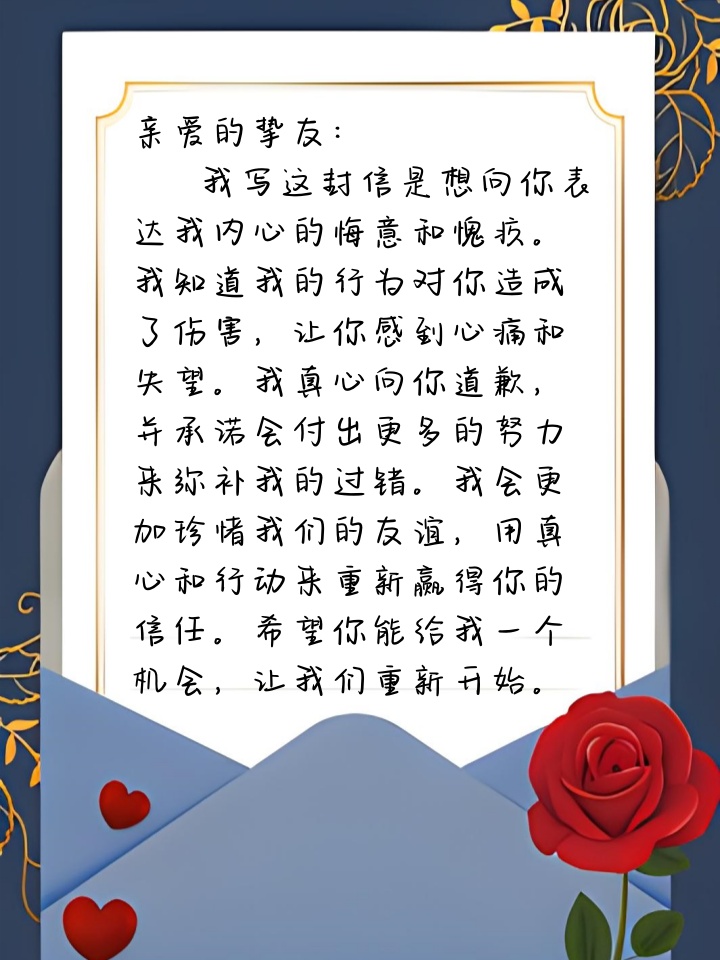 亲爱的挚友：
我写这封信是想向你表
达我内心的悔意和愧疚。
我知道我的行为对你造成
了伤害，让你感到心痛和
失望。我真心向你道歉，
并承诺会付出更多的努力
来弥补我的过错。我会更
加珍惜我们的友谊，用真
心和行动来重新赢得你的
信任。希望你能给我一个
机会，让我们重新开始。